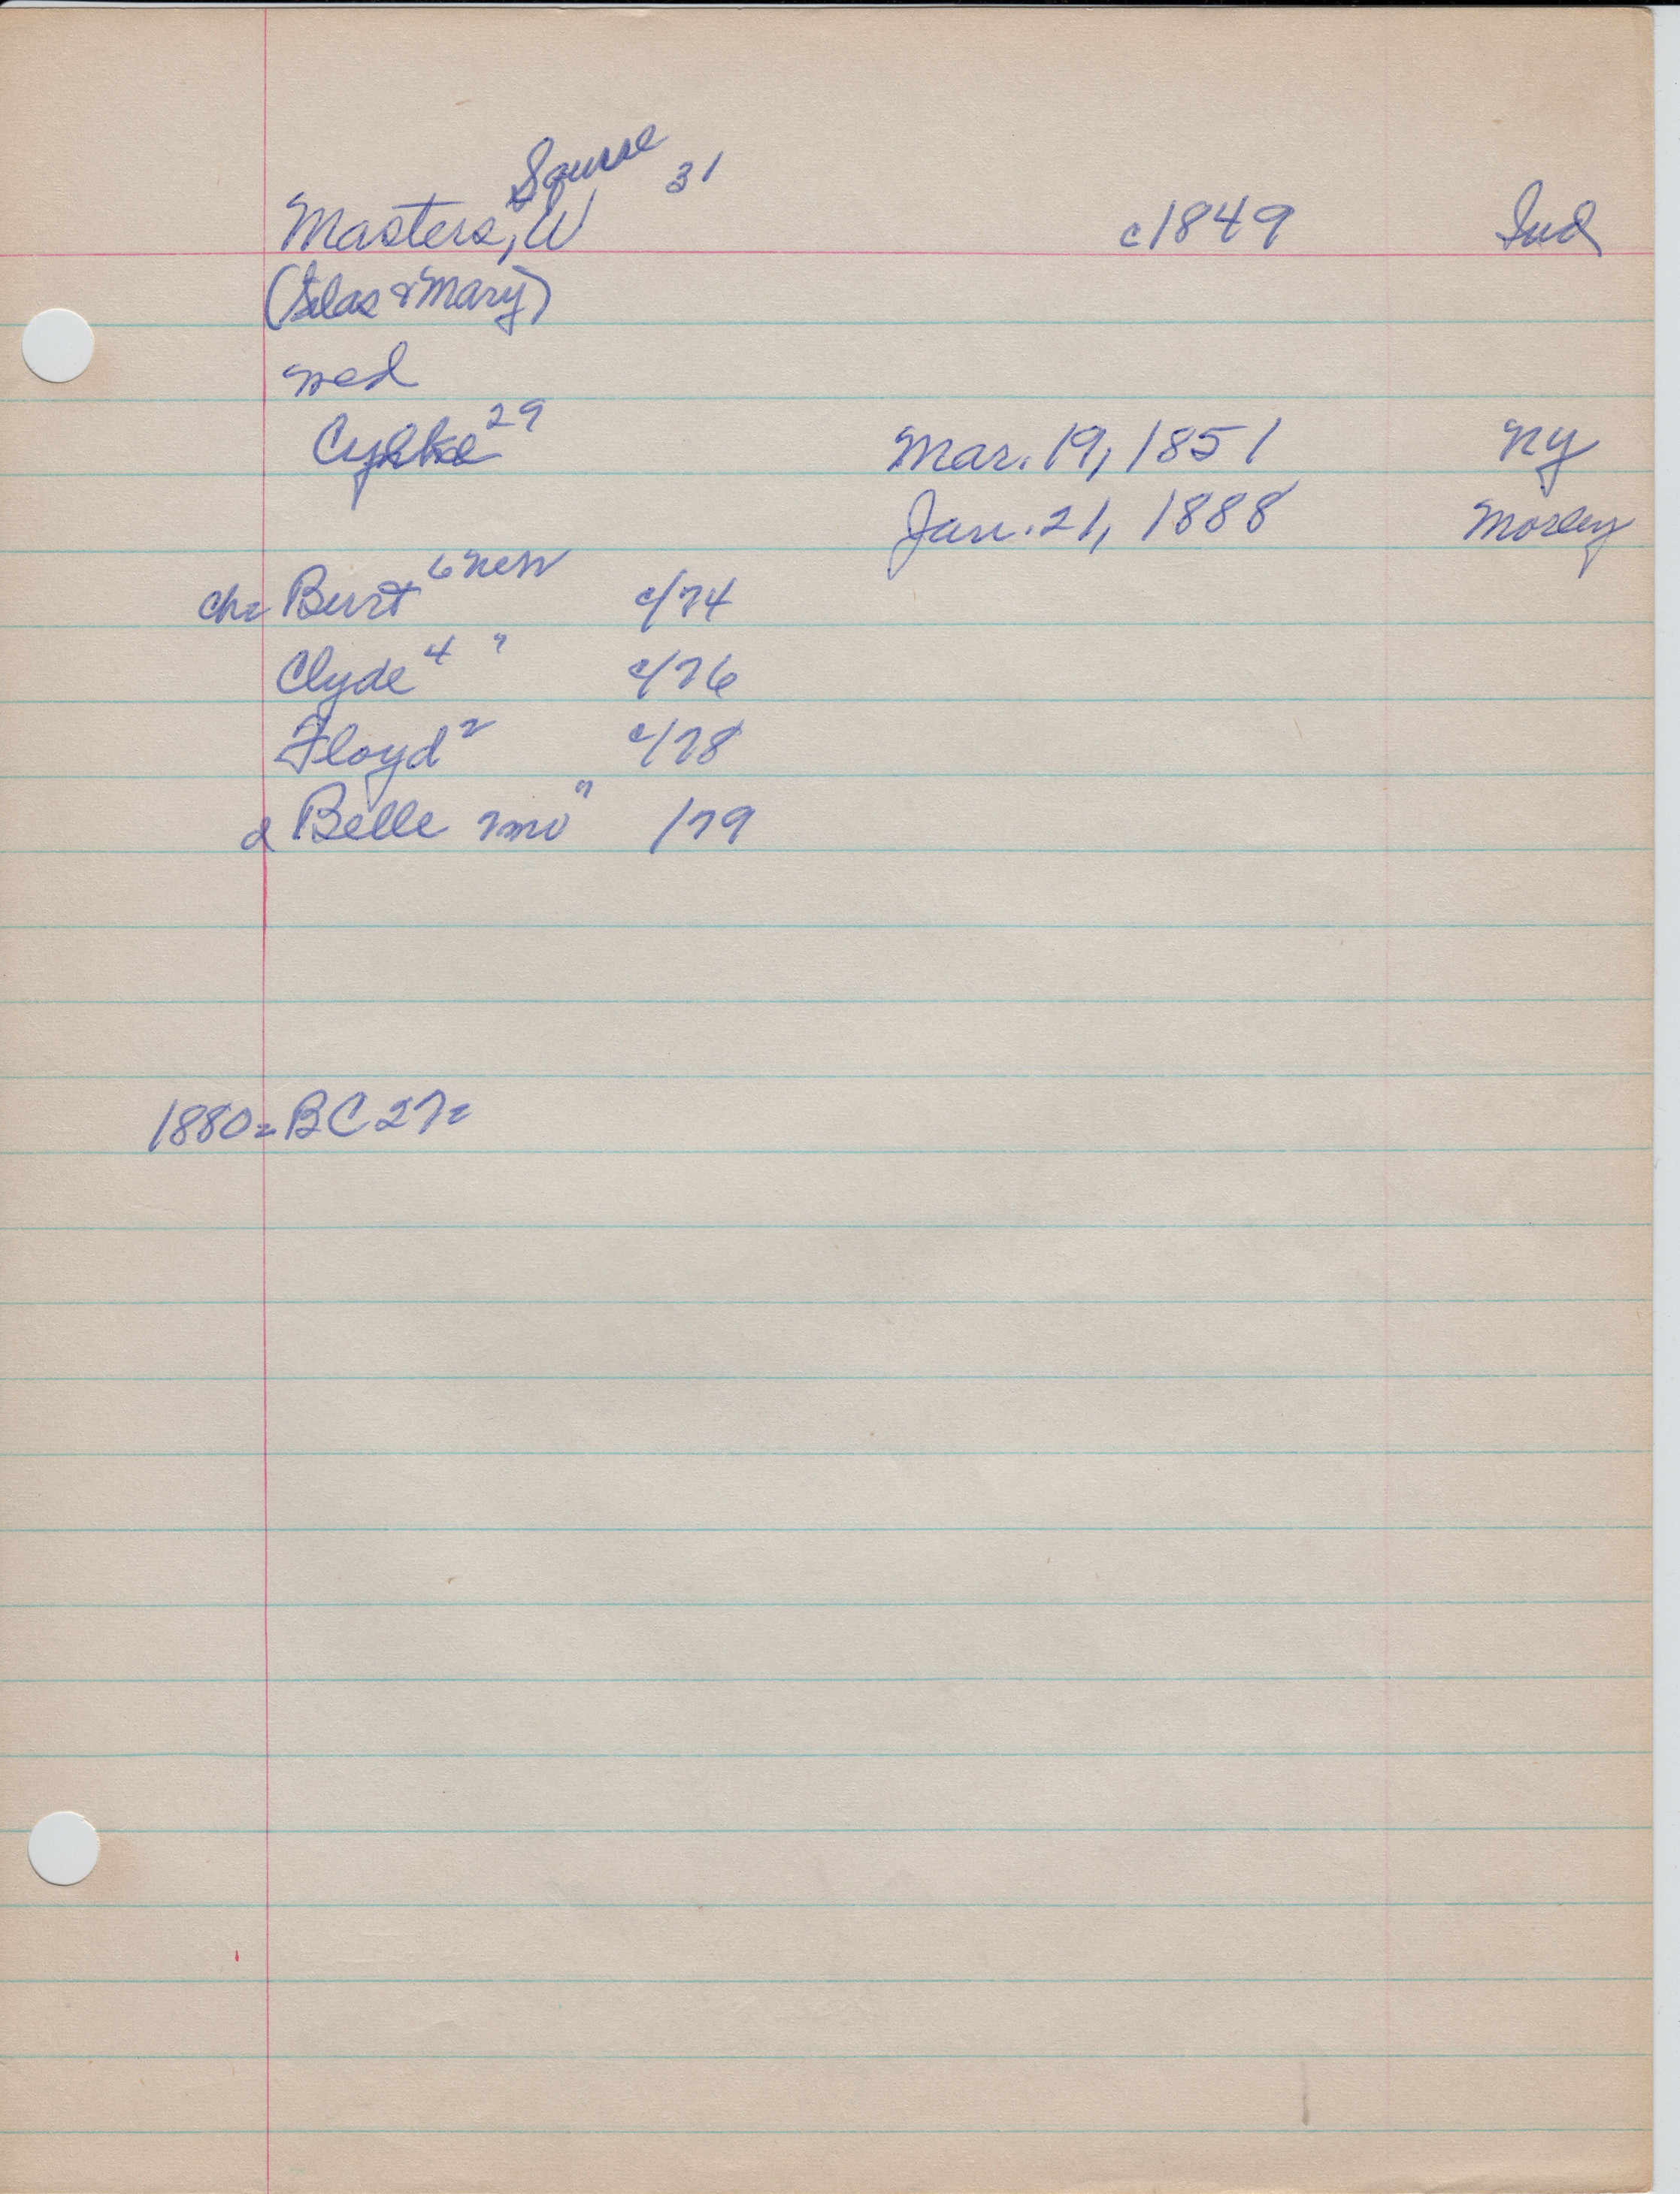 Masters, W Squire 31 c1849 Ind
(Silas & Mary)
med
29 Mar. 19, 1851 NY
Jan. 21, 1888 Morley
ch= Burt 6 Neb c/74
Clyde 4 " c/76
Floyd 2 c/78
d Belle 7mo " /79
1880= BC 27=